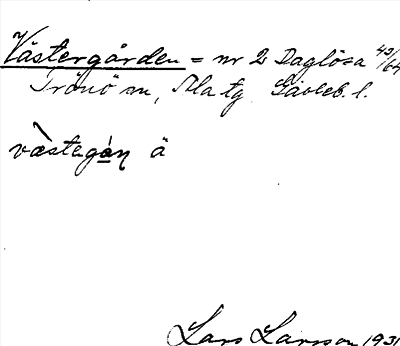 Västergården = nr 2 Daglösa 43/64
Trönö sn, Ala tg Gävleb. l.
væstegán ä
Lars Larsson 1931